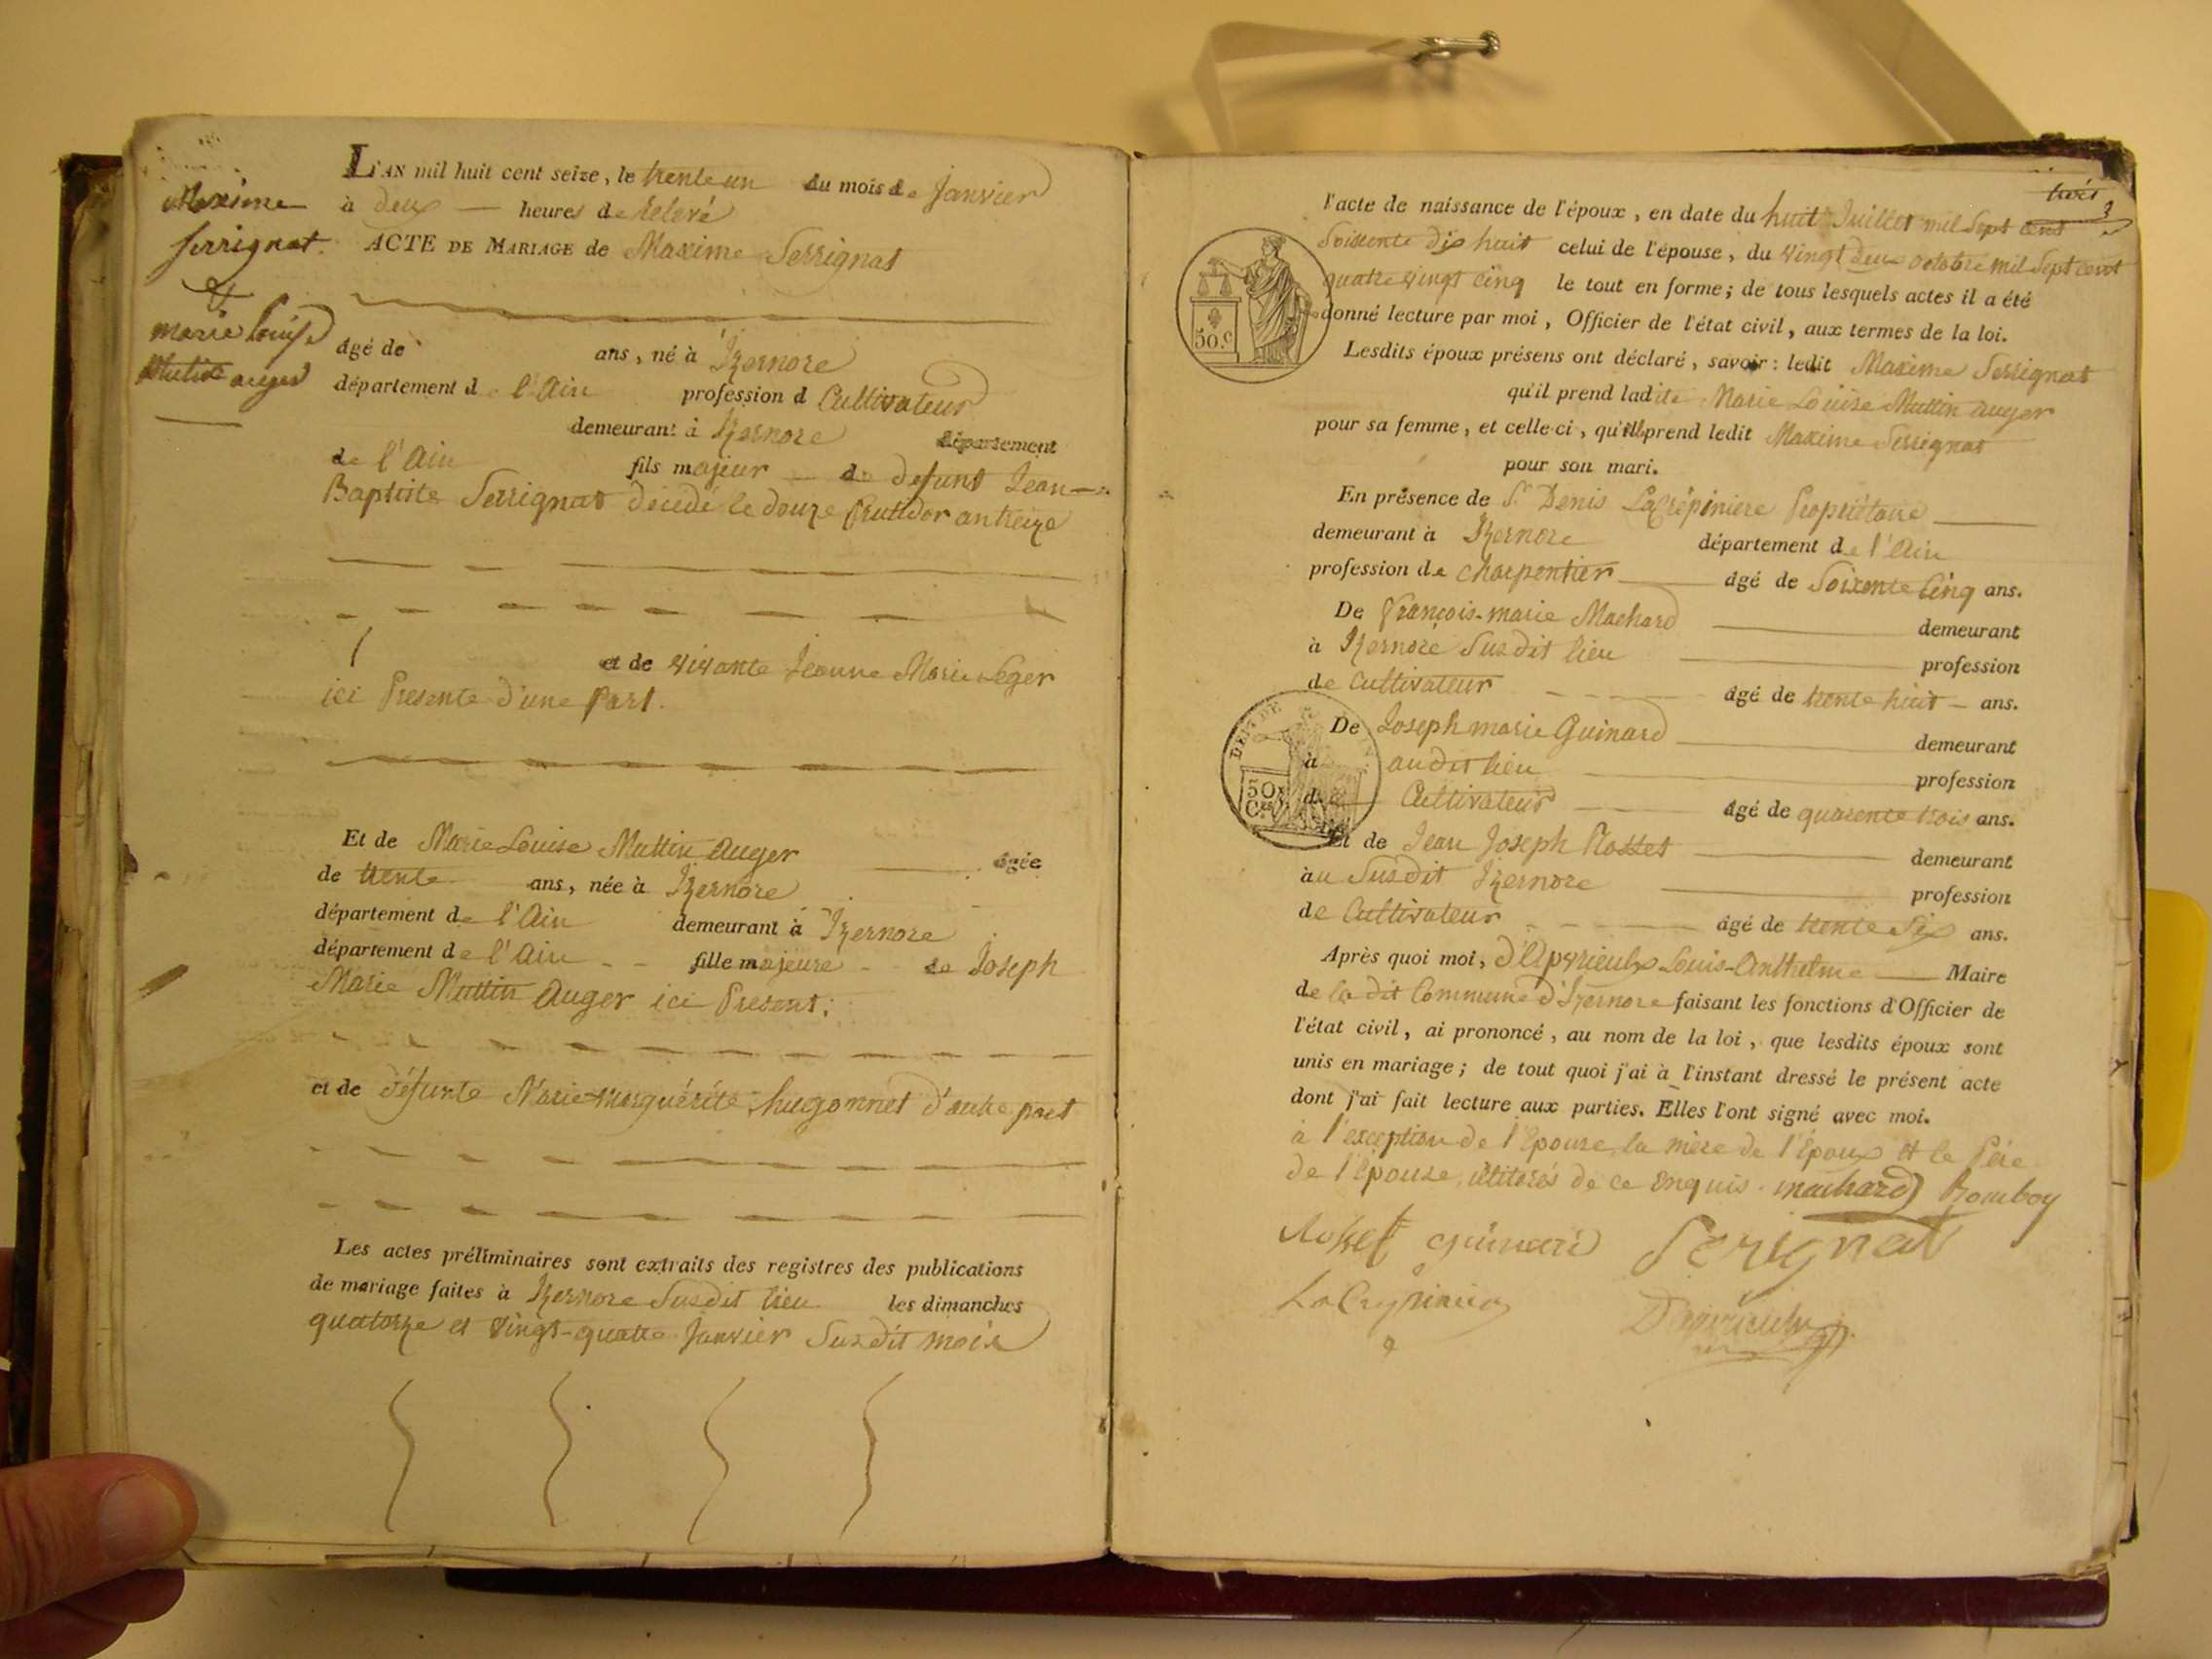 L'AN mil huit cent seize, le trente un du mois de Janvier
à deux heures de relevé
ACTE DE MARIAGE de Maxime Serrignat
Maxime
Serrignat
&
marie Louise
Muttin auger
âgé de ans, né à Izernore
département de l'Ain profession d Cultivateur
demeurant à Izernore département
de l'Ain fils majeur de defunt Jean
Baptiste Serrignat décédé le douze fructidor an treize
et de vivante Jeanne Marie Leger
ici Presente d'une Part.
Et de Marie Louise Muttin Auger âgée
de trente ans, née à Izernore
département de l'Ain demeurant à Izernore
département de l'Ain fille majeure de Joseph
Marie Muttin Auger ici Present;
et de défunte Marie Marguérite hugonnet d'autre part
Les actes préliminaires sont extraits des registres des publications
de mariage faites à Izernore Susdit lieu les dimanches
quatorze et vingt-quatre Janvier Susdit mois
trois
3
l'acte de naissance de l'époux, en date du huit Juillet mil Sept cent
Soixente dix huit celui de l'épouse, du vingt deux octobre mil Sept cent
quatre vingt cinq le tout en forme; de tous lesquels actes il a été
donné lecture par moi, Officier de l'état civil, aux termes de la loi.
50.c
Lesdits époux présens ont déclaré, savoir: ledit Maxime Serrignat
qu'il prend ladite Marie Louise Muttin auger
pour sa femme, et celle-ci, qu'elle prend ledit Maxime Serrignat
pour son mari.
En présence de Sr Denis LaCrépiniere Propriétaire
demeurant à Izernore département de l'Ain
profession de charpentier âgé de Soixente Cinq ans.
De François-marie Machard demeurant
à Izernore Susdit lieu profession
de Cultivateur âgé de trente huit ans.
De Joseph marie Guinard demeurant
à audit lieu profession
de Cultivateur âgé de quarente trois ans.
50
Ces
Et de Jean Joseph Rosset demeurant
au Susdit Izernore profession
de Cultivateur âgé de trente Six ans.
Après quoi moi, d'Apvrieulx Louis-Anthelme Maire
de la dit Commune d'Izernore faisant les fonctions d'Officier de
l'état civil, ai prononcé, au nom de la loi, que lesdits époux sont
unis en mariage; de tout quoi j'ai à l'instant dressé le présent acte
dont j'ai fait lecture aux parties. Elles l'ont signé avec moi.
à l'exception de l'Epouse, la mère de l'Epoux et le Père
de l'Epouse, illitérés de ce enquis. machard
Rosset guinard Serignat
LaCrepiniere